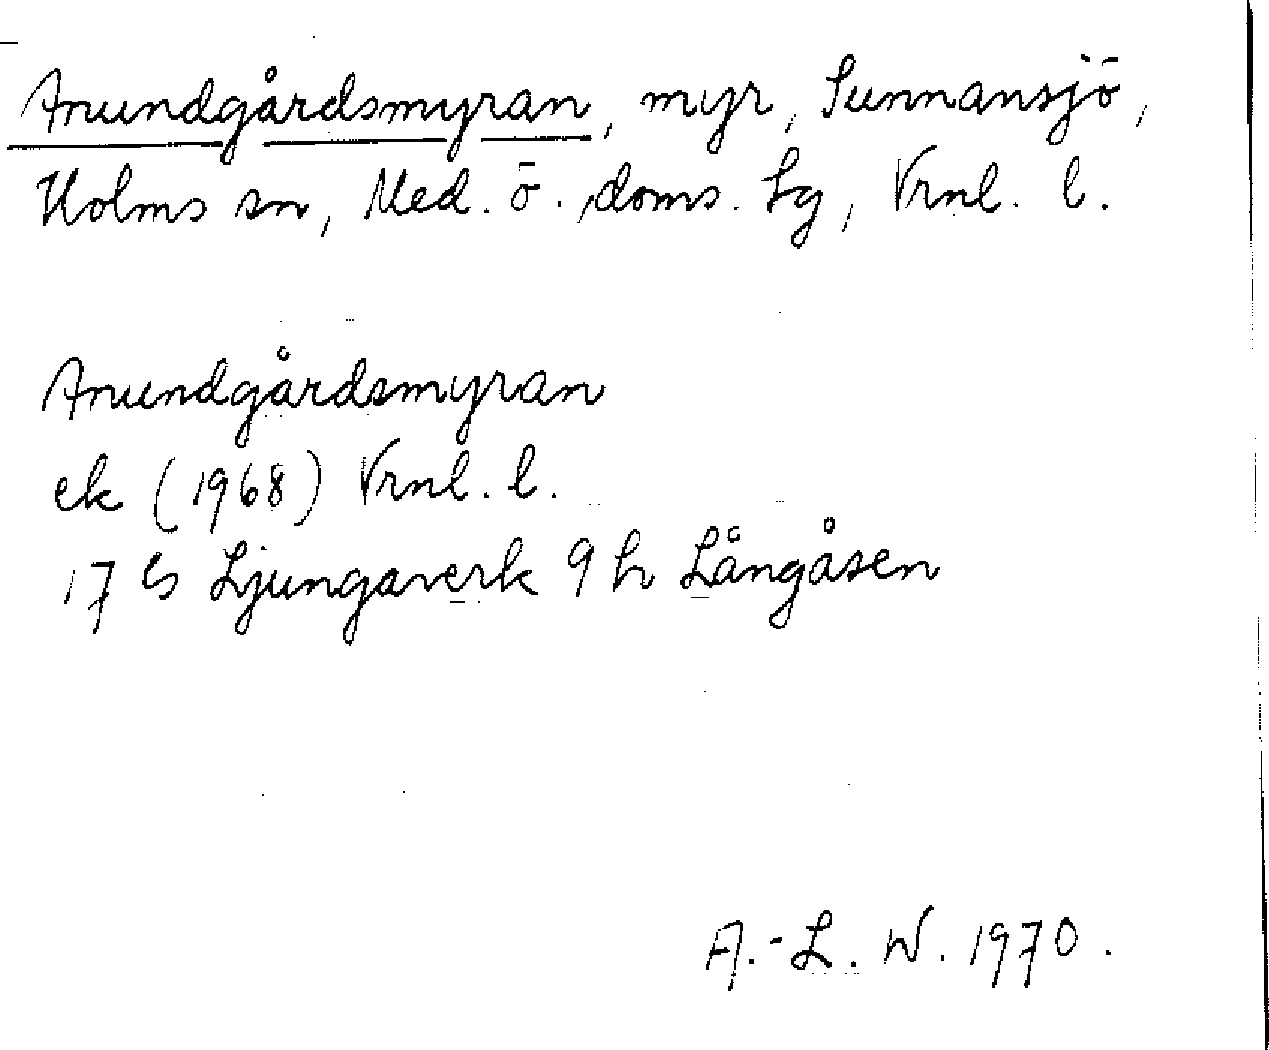 Anundgårdsmyran, myr, Sunnansjö,
Holms sn, Med. ö. doms. lg, Vrnl. l.
Anundgårdsmyran
ek (1968) Vrnl. l.
17 G Ljungaverk 9 h Långåsen
A.-L. W. 1970.